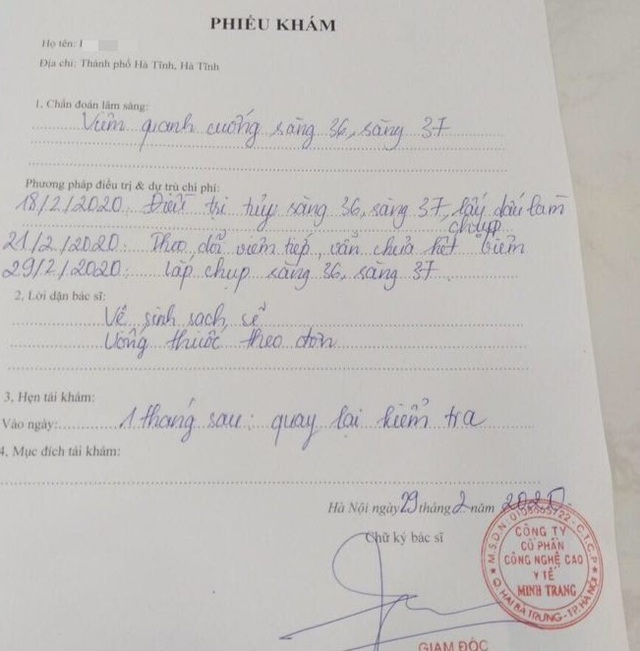 PHIẾU KHÁM
Họ tên:
Địa chỉ: Thành phố Hà Tĩnh, Hà Tĩnh
1. Chẩn đoán lâm sàng:
Viêm quanh cuống răng 36, răng 37
Phương pháp điều trị & dự trù chi phí:
18/2/2020: Điều trị tủy răng 36, răng 37, lấy dấu làm
chụp
21/2/2020: Theo dõi viêm tiếp, vẫn chưa hết viêm
29/2/2020: lắp chụp răng 36, răng 37
2. Lời dặn bác sĩ:
Vệ sinh sạch sẽ
Uống thuốc theo đơn
3. Hẹn tái khám:
Vào ngày: 1 tháng sau: quay lại kiểm tra
4. Mục đích tái khám:
Hà Nội ngày 29 tháng 2 năm 2020
Chữ ký bác sĩ
CÔNG TY
CỔ PHẦN
CÔNG NGHỆ CAO
Y TẾ
MINH TRANG
Q HAI BÀ TRƯNG - TP. HÀ NỘI
GIÁM ĐỐC